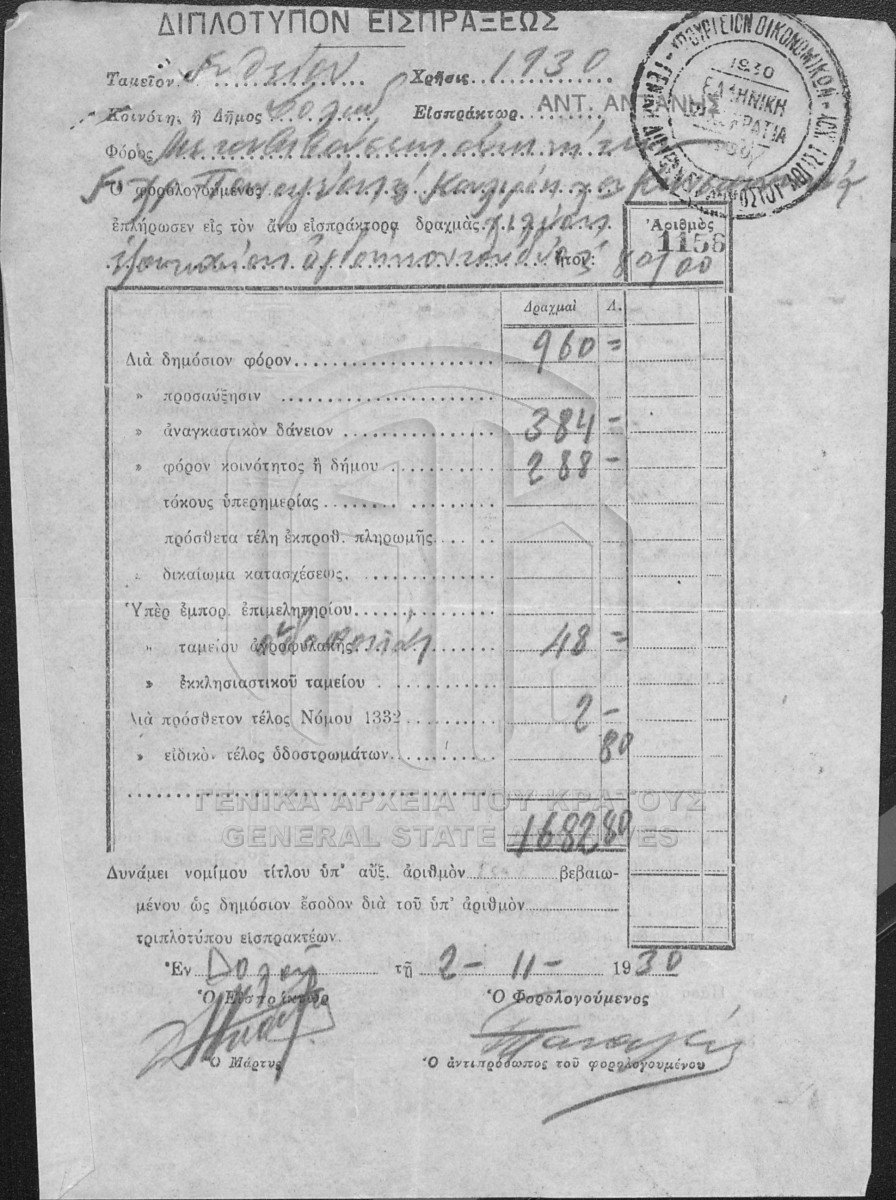 ΔΙΠΛΟΤΥΠΟΝ ΕΙΣΠΡΑΞΕΩΣ
Ταμεῖον Γυθείου Χρῆσις 1930
Κοινότη. ἢ Δῆμος Εἰσπράκτωρ ΑΝΤ. ΑΝΤΑΝΗΣ
Φόρος Μεταβιβάσεως
Ὁ φορολογούμενος
ἐπλήρωσεν εἰς τὸν ἄνω εἰσπράκτορα δραχμὰς χιλίας
ἑξακοσίας ὀγδοήκοντα δύο ἤτοι: 80/00
Ἀριθμὸς
1156
ΥΠΟΥΡΓΕΙΟΝ ΟΙΚΟΝΟΜΙΚΩΝ
1930
ΕΛΛΗΝΙΚΗ
ΔΗΜΟΚΡΑΤΙΑ
Δραχμαὶ Λ.
Διὰ δημόσιον φόρον 960 =
» προσαύξησιν
» ἀναγκαστικὸν δάνειον 384 =
» φόρον κοινότητος ἢ δήμου 288 =
τόκους ὑπερημερίας
πρόσθετα τέλη ἐκπροθ. πληρωμῆς
» δικαίωμα κατασχέσεως
Ὑπὲρ ἐμπορ. ἐπιμελητηρίου
» ταμείου ἀγροφυλακῆς 48 =
» ἐκκλησιαστικοῦ ταμείου
Διὰ πρόσθετον τέλος Νόμου 1332 2 -
» εἰδικὸ. τέλος ὁδοστρωμάτων 80
ΓΕΝΙΚΑ ΑΡΧΕΙΑ ΤΟΥ ΚΡΑΤΟΥΣ
GENERAL STATE ARCHIVES
1682 80
Δυνάμει νομίμου τίτλου ὑπ' αὔξ. ἀριθμὸν βεβαιω-
μένου ὡς δημόσιον ἔσοδον διὰ τοῦ ὑπ' ἀριθμὸν
τριπλοτύπου εἰσπρακτέων.
Ἐν τῇ 2 - 11 - 1930
Ὁ Εἰσπράκτωρ Ὁ Φορολογούμενος
Ὁ Μάρτυς Ὁ ἀντιπρόσωπος τοῦ φορολογουμένου